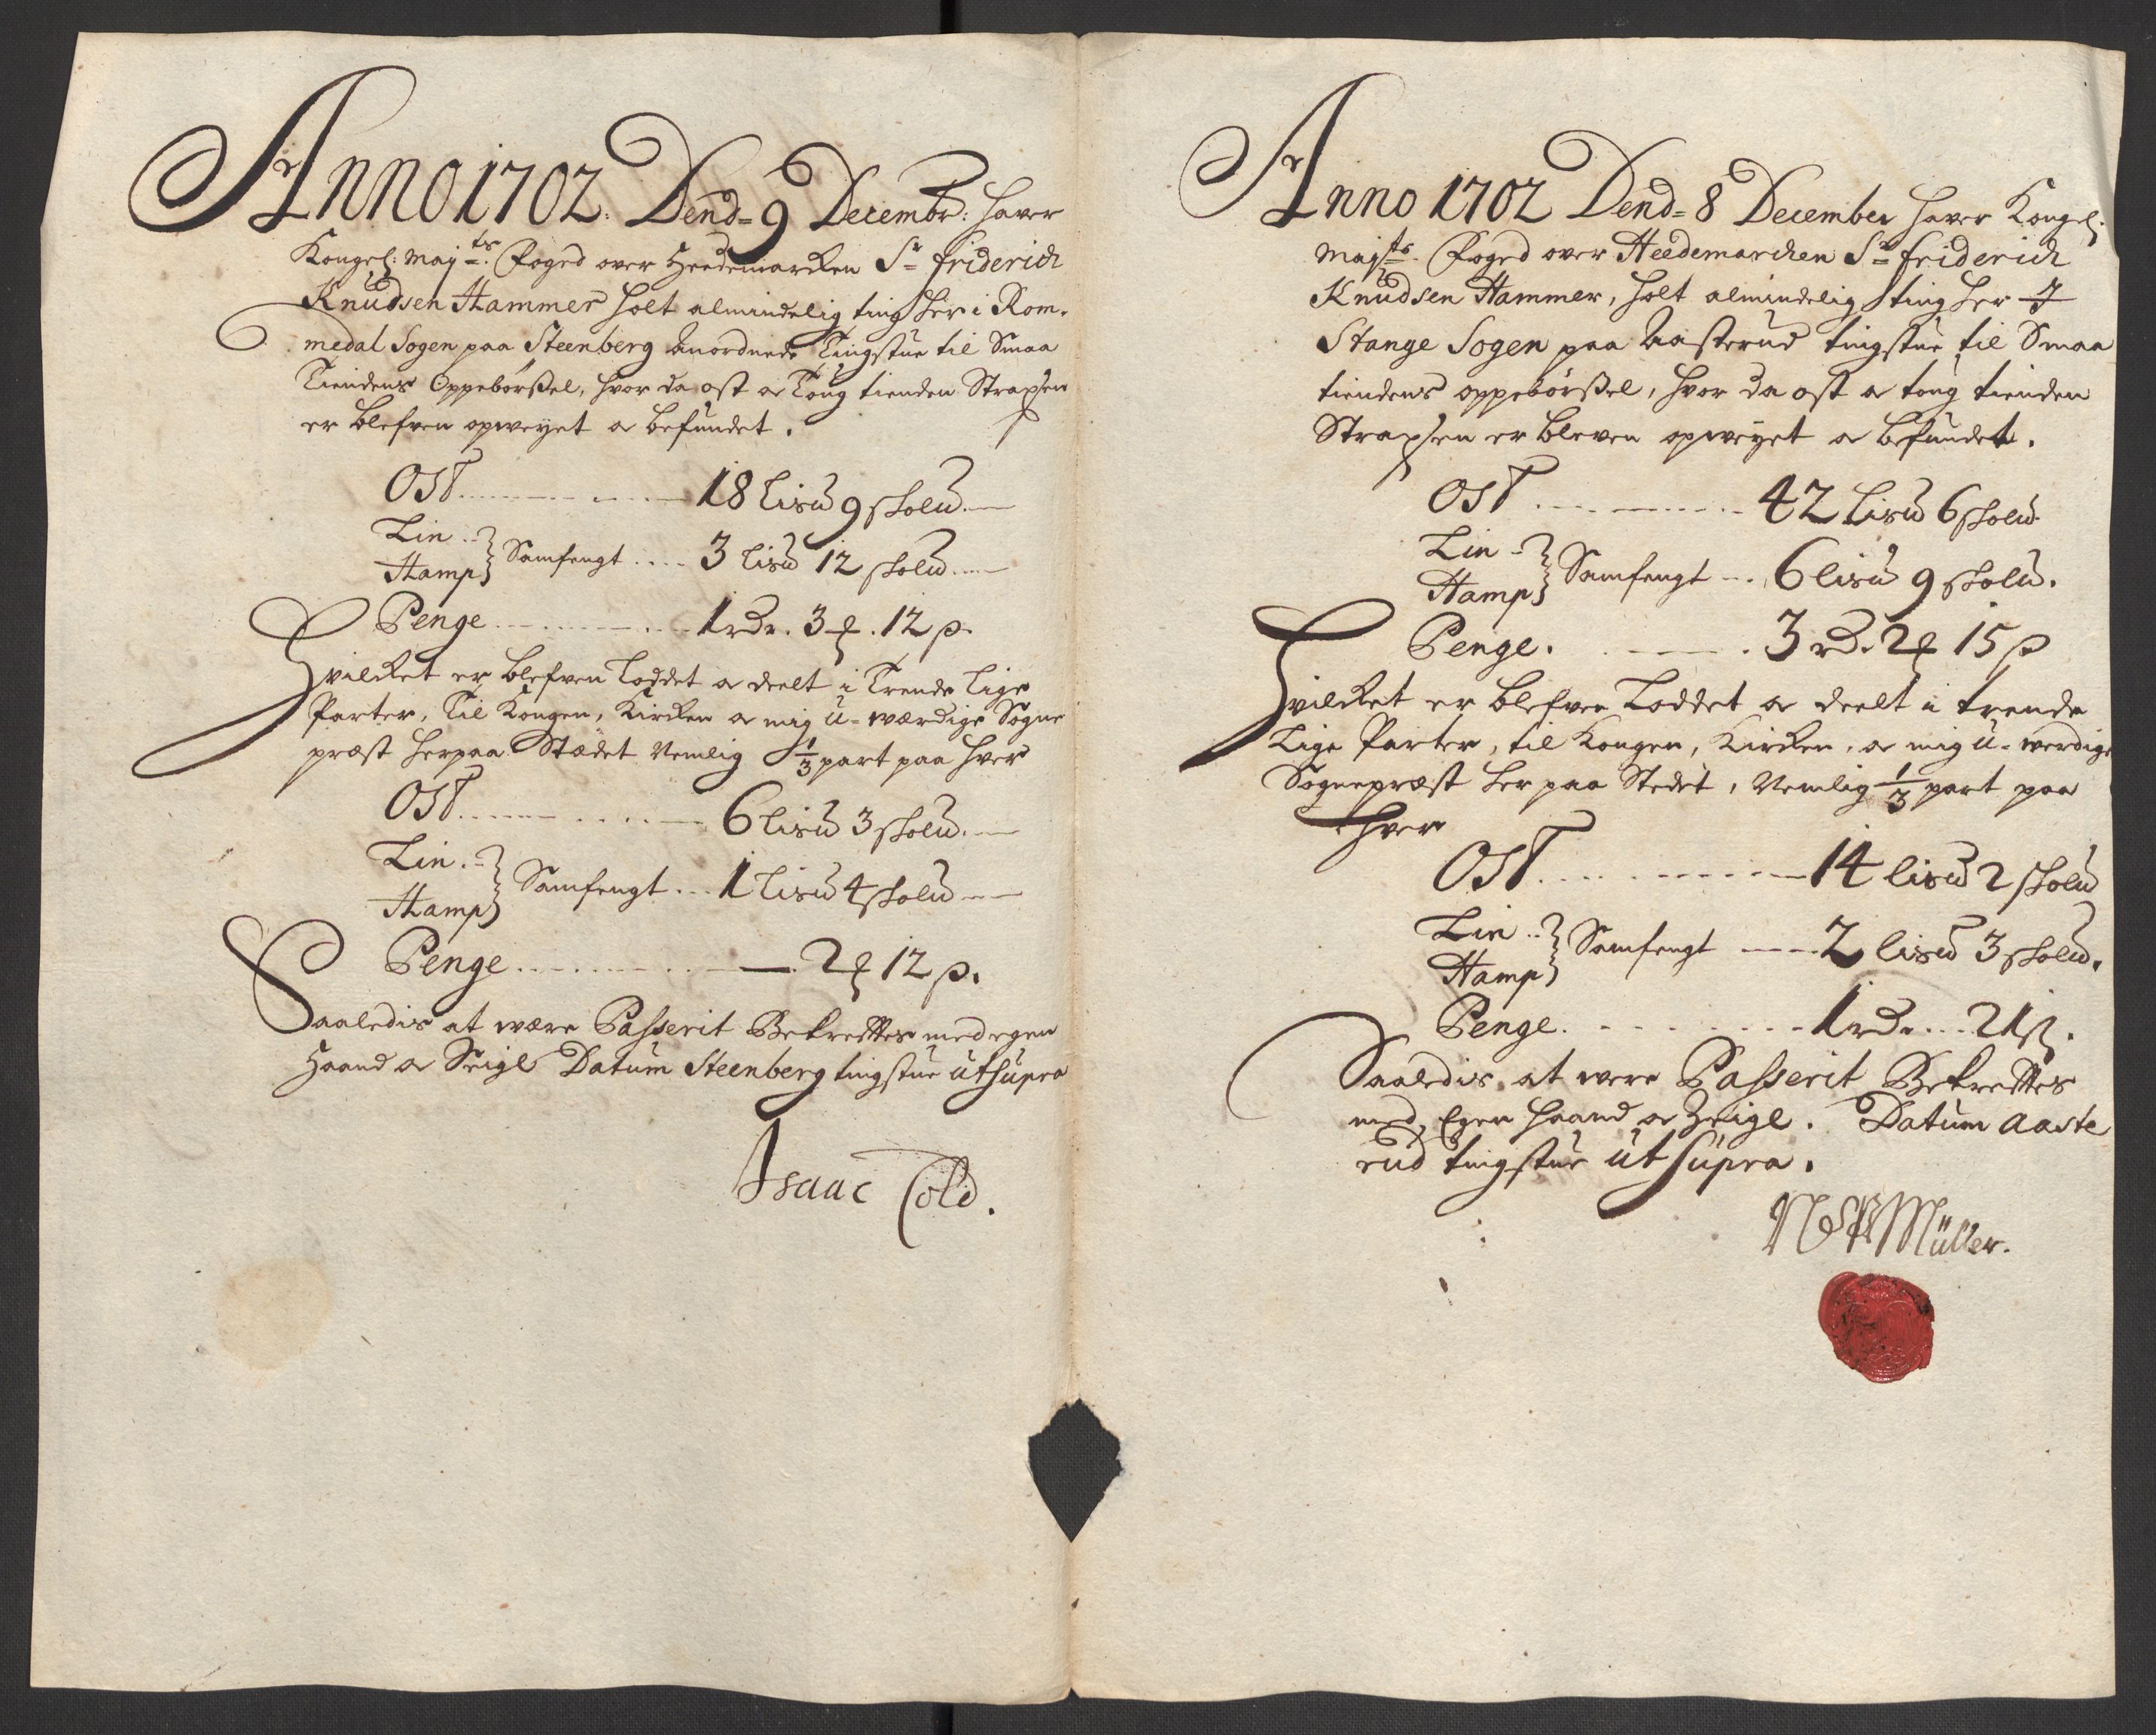 Anno 1702. Dend= 9 Decembr: hafver
Kongel: Mayts: Foged over Heedemarcken Sr Friderich
Knudsen Hammer holt almindelig ting her i Rom-
medal Sogen paa Steenberg anordnede Tingstue til Smaa
Tiendens Oppebørßel, hvor da ost oc Toug tienden Straxsen
er blefven opveyet oc befundet.
Ost 18 lisu 9 skolu.
Lin
Hamp } Samfengt 3 lisu 12 skolu
Penge 1 rdr. 3 ƒ. 12 p.
Hvilcket er blefven loddet oc deelt i Trende lige
Parter, Til Kongen, Kircken oc mig u-wærdige Sogne
præst her paa Stædet Nemlig 1/3 part paa hver
Ost 6 lisu 3 skolu.
Lin
Hamp } Samfengt 1 lisu 4 skolu
Penge 2 ƒ 12 p.
Saaledis at være Passerit Bekreftes med egen
Haand oc Seigl Datum Steenberg tingstue ut supra
Isaac Cold.
Anno 1702 Dend= 8 December hafver Kongel:
Mayts. Foged over Heedemarchen Sr Friderich
Knudsen Hammer, holt almindelig ting her J
Stange Sogen paa Aasterud tingstue til Smaa
tiendens oppebörßel, hvor da ost oc toug tienden
Straxsen er bleven opveyet oc befundet.
Ost 42 lisu 6 skolu.
Lin
Hamp } Samfengt 6 lisu 9 skolu.
Penge. 3 rd. 2 ƒ 15 p
Hvilcket er blefven Loddet oc deelt i trende
Lige Parter, til Kongen, Kircken, oc mig u-werdige
Sognepræst her paa Stedet, Nemlig 1/3 part paa
hver
Ost 14 lisu 2 skolu
Lin
Hamp } Samfengt 2 lisu 3 skolu.
Penge. 1 rdr. 21 ß.
Saaledis at were Passerit Bekreftes
med Egen haand oc Zeigl. Datum Aaste
rud tingstue ut supra.
Müller.